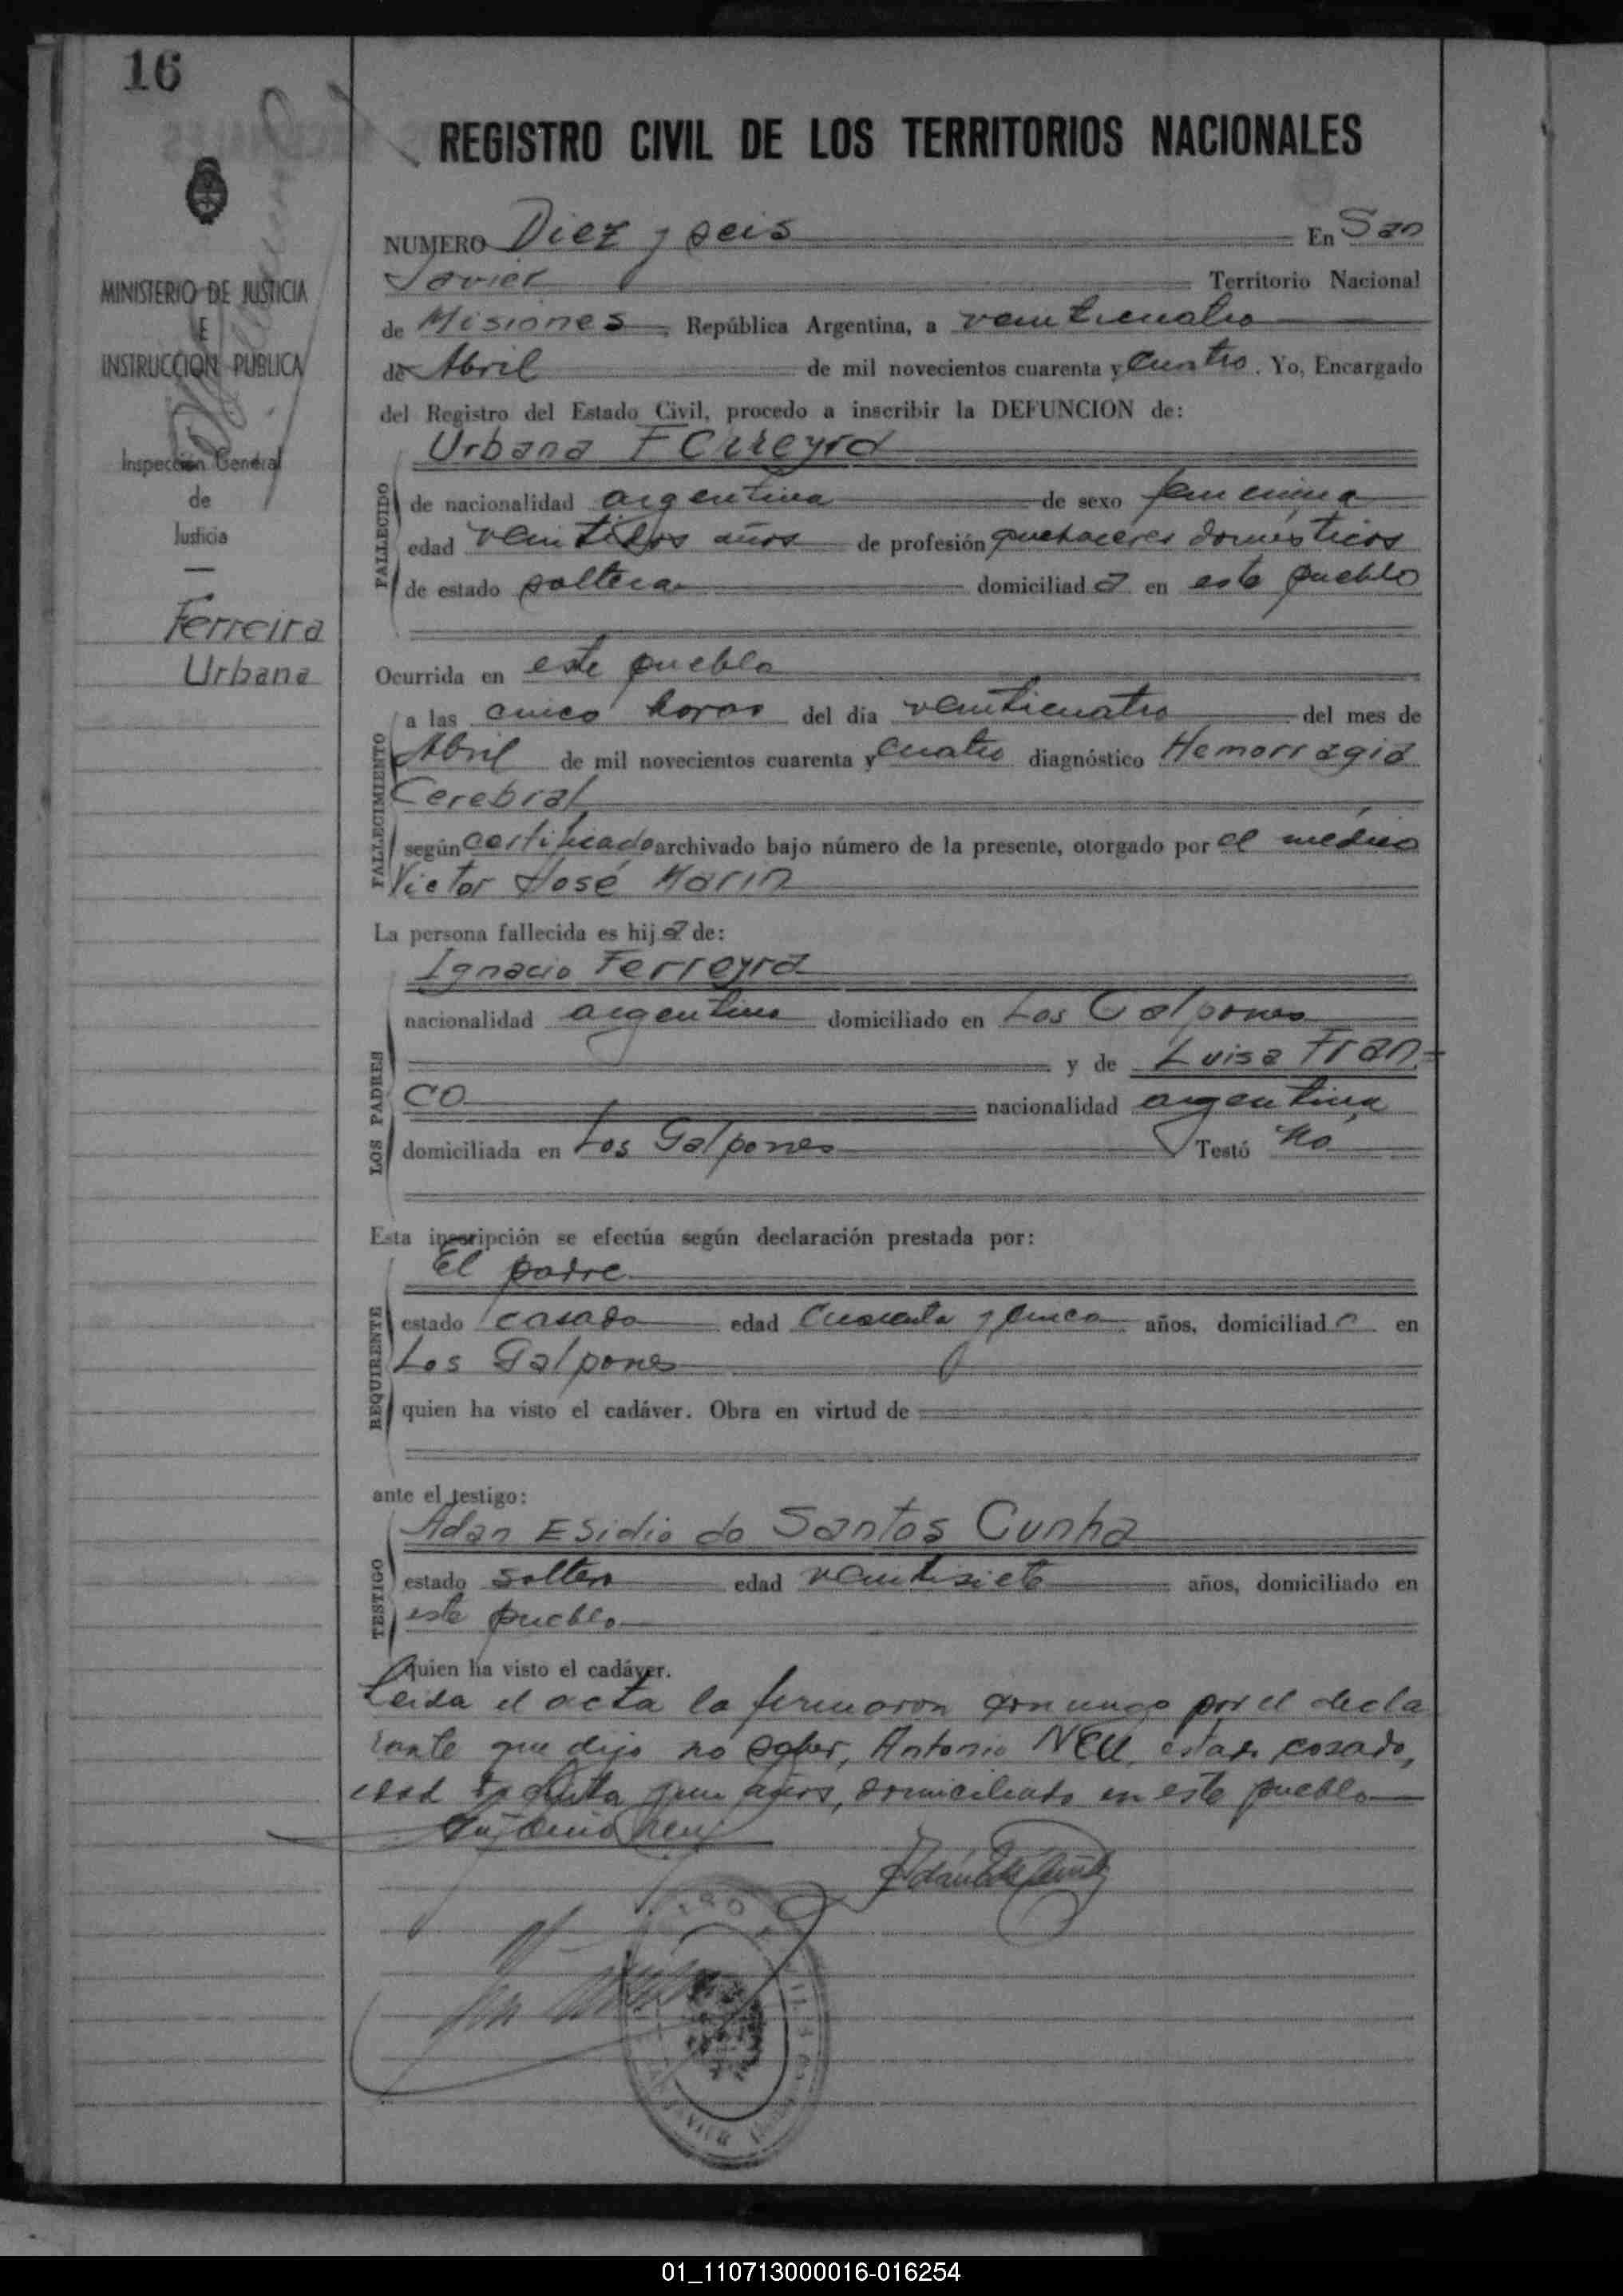 16
REGISTRO CIVIL DE LOS TERRITORIOS NACIONALES
MINISTERIO DE JUSTICIA
E
INSTRUCCION PUBLICA
Inspección General
de
Justicia
Ferreira
Urbana
NUMERO Diez y seis En San
Javier Territorio Nacional
de Misiones, República Argentina, a veinticuatro
de Abril de mil novecientos cuarenta y Cuatro. Yo, Encargado
del Registro del Estado Civil, procedo a inscribir la DEFUNCION de:
Urbana FErreyra
FALLECIDO
de nacionalidad argentina de sexo femenina
edad veintidos años de profesión quehaceres domésticos
de estado soltera domiciliada en este pueblo
Ocurrida en este pueblo
FALLECIMIENTO
a las cinco horas del día veinticuatro del mes de
Abril de mil novecientos cuarenta y cuatro diagnóstico Hemorragia
Cerebral
según certificado archivado bajo número de la presente, otorgado por el médico
Victor José Marin
La persona fallecida es hija de:
LOS PADRES
Ignacio Ferreyra
nacionalidad argentino domiciliado en Los Galpones
y de Luisa Fran=
co nacionalidad argentina
domiciliada en Los Galpones Testó No
Esta inscripción se efectúa según declaración prestada por:
REQUIRENTE
El padre
estado casado edad Cuarenta y cinco años, domiciliado en
Los Galpones
quien ha visto el cadáver. Obra en virtud de
ante el testigo:
TESTIGO
Adan Esidio do Santos Cunha
estado soltero edad veintisiete años, domiciliado en
este pueblo
quien ha visto el cadáver.
Leida el acta la firmaron conmigo por el decla
rante que dijo no saber, Antonio NEU, estado casado,
edad años, domiciliado en este pueblo
Antonio Neu
01_110713000016-016254